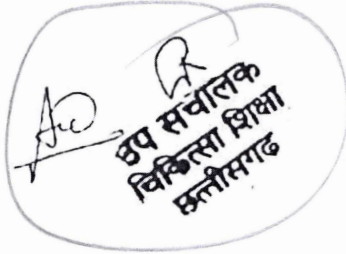 उप संचालक
चिकित्सा शिक्षा
छत्तीसगढ़